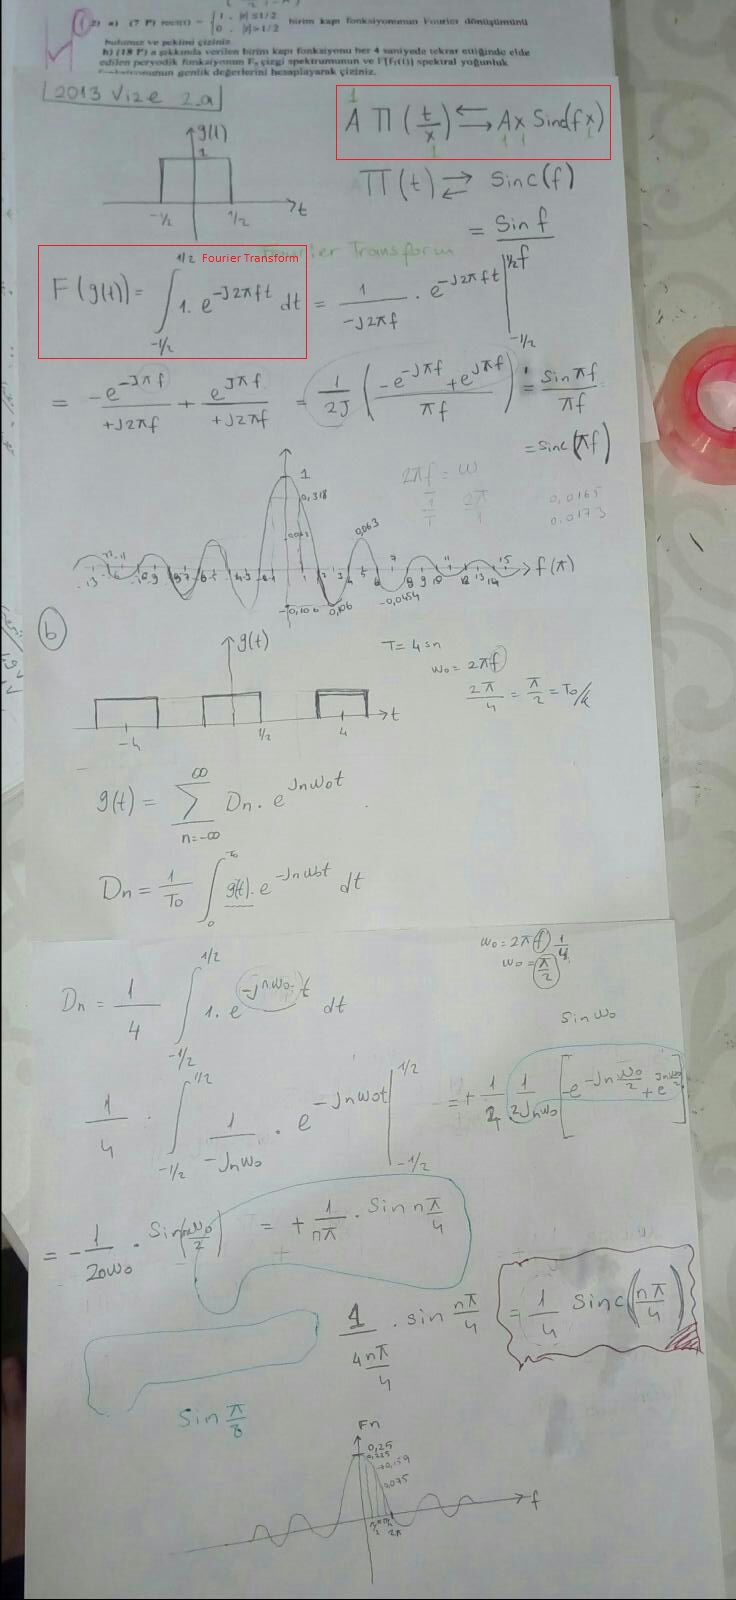 2) a) (7 P) rect(t) = { 1 , |t| ≤ 1/2
0 , |t| > 1/2 birim kapı fonksiyonunun Fourier dönüşümünü
bulunuz ve şeklini çiziniz.
b) (18 P) a şıkkında verilen birim kapı fonksiyonu her 4 saniyede tekrar ettiğinde elde
edilen peryodik fonksiyonun Fn çizgi spektrumunun ve spektral yoğunluk
genlik değerlerini hesaplayarak çiziniz.
2013 Vize 2.a
1
A Π(t/x) ⇄ Ax Sinc(fx)
1 1 1 1
g(t)
1
-1/2 1/2 t
Π(t) ⇄ Sinc(f)
= Sin f / f
Fourier Transform
Fourier Transform
F(g(t)) = ∫_{-1/2}^{1/2} 1. e^{-J2πft} dt = 1/(-J2πf) . e^{-J2πft} |_{-1/2}^{1/2}
= -e^{-Jπf}/(+J2πf) + e^{Jπf}/(+J2πf) = 1/2J ( (-e^{-Jπf} + e^{Jπf}) / πf ) = Sin πf / πf
= Sinc(πf)
2πf = W
0,0165
0,0173
1
0,318
0,063
-0,106 0,106 -0,0454
f(π)
b
g(t)
-4 1/2 4 t
T = 4 sn
w0 = 2πf
2π/4 = π/2 = T0/k
g(t) = Σ_{n=-∞}^{∞} Dn . e^{Jnw0t}
Dn = 1/T0 ∫_0^{T0} g(t) . e^{-Jnw0t} dt
w0 = 2π(f) 1/4
w0 = π/2
Dn = 1/4 ∫_{-1/2}^{1/2} 1. e^{-Jnw0t} dt
Sin w0
1/4 . ∫_{-1/2}^{1/2} 1/(-Jnw0) . e^{-Jnw0t} |_{-1/2}^{1/2} = + 1/2 1/(2Jnw0) [-e^{-Jn w0/2} + e^{Jn w0/2}]
= - 1/(2nw0) . Sin(nw0/2) = + 1/nπ . Sin nπ/4
1/(4nπ/4) . sin nπ/4 = 1/4 Sinc(nπ/4)
Sin π/8
Fn
0,25
0,225
0,159
0,075
2π
f